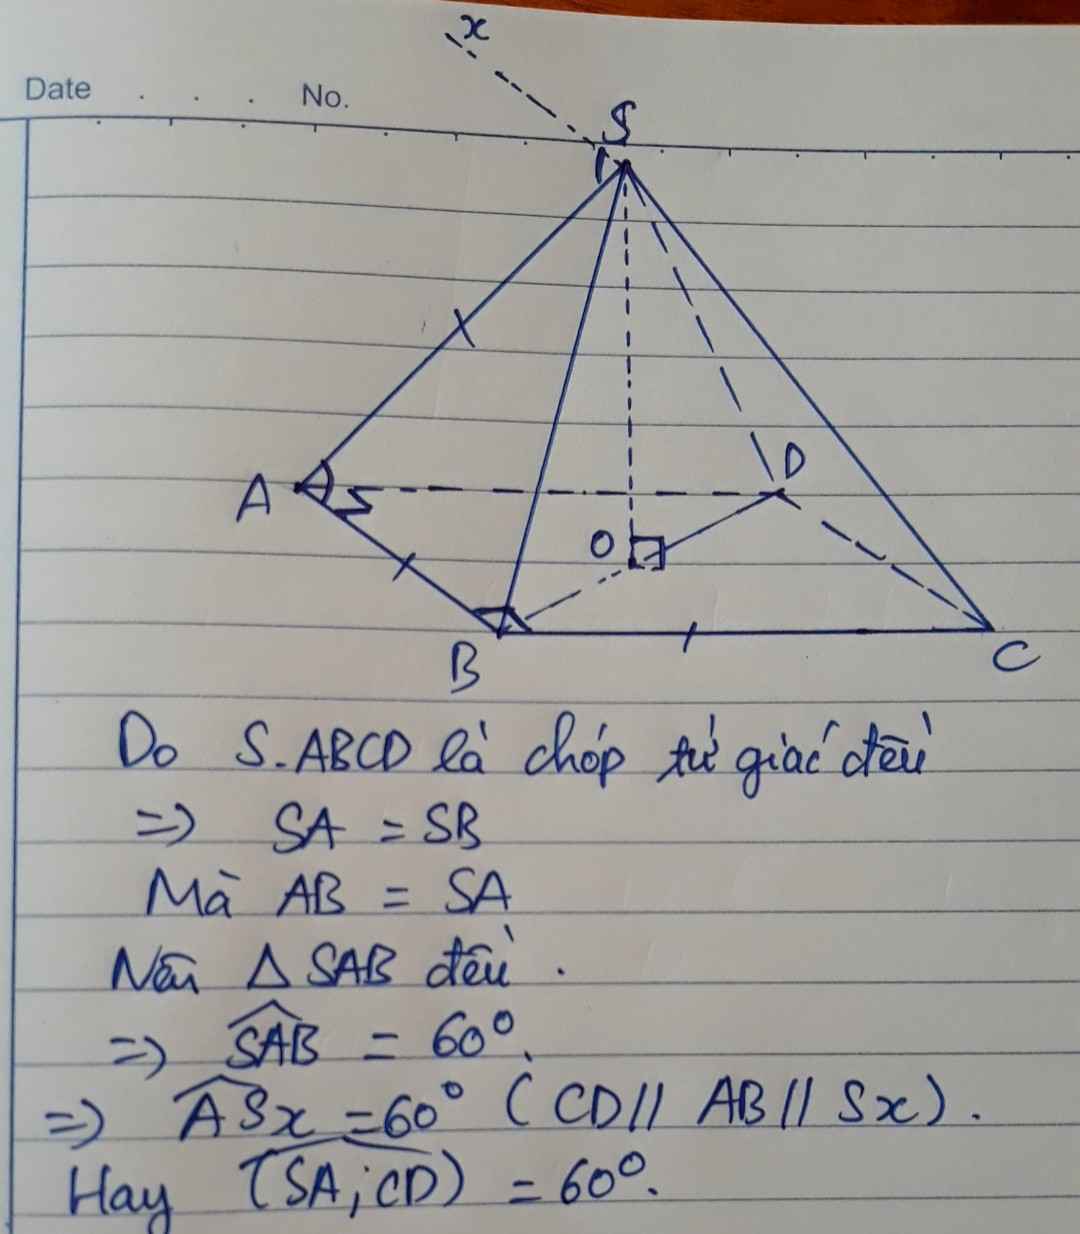 x
Date . . . No.
S
A
D
O
B
C
Do S.ABCD là chóp tứ giác đều
=> SA = SB
Mà AB = SA
Nên △ SAB đều .
=> \widehat{SAB} = 60°.
=> \widehat{ASx} = 60° ( CD // AB // Sx ) .
Hay (\widehat{SA; CD}) = 60°.